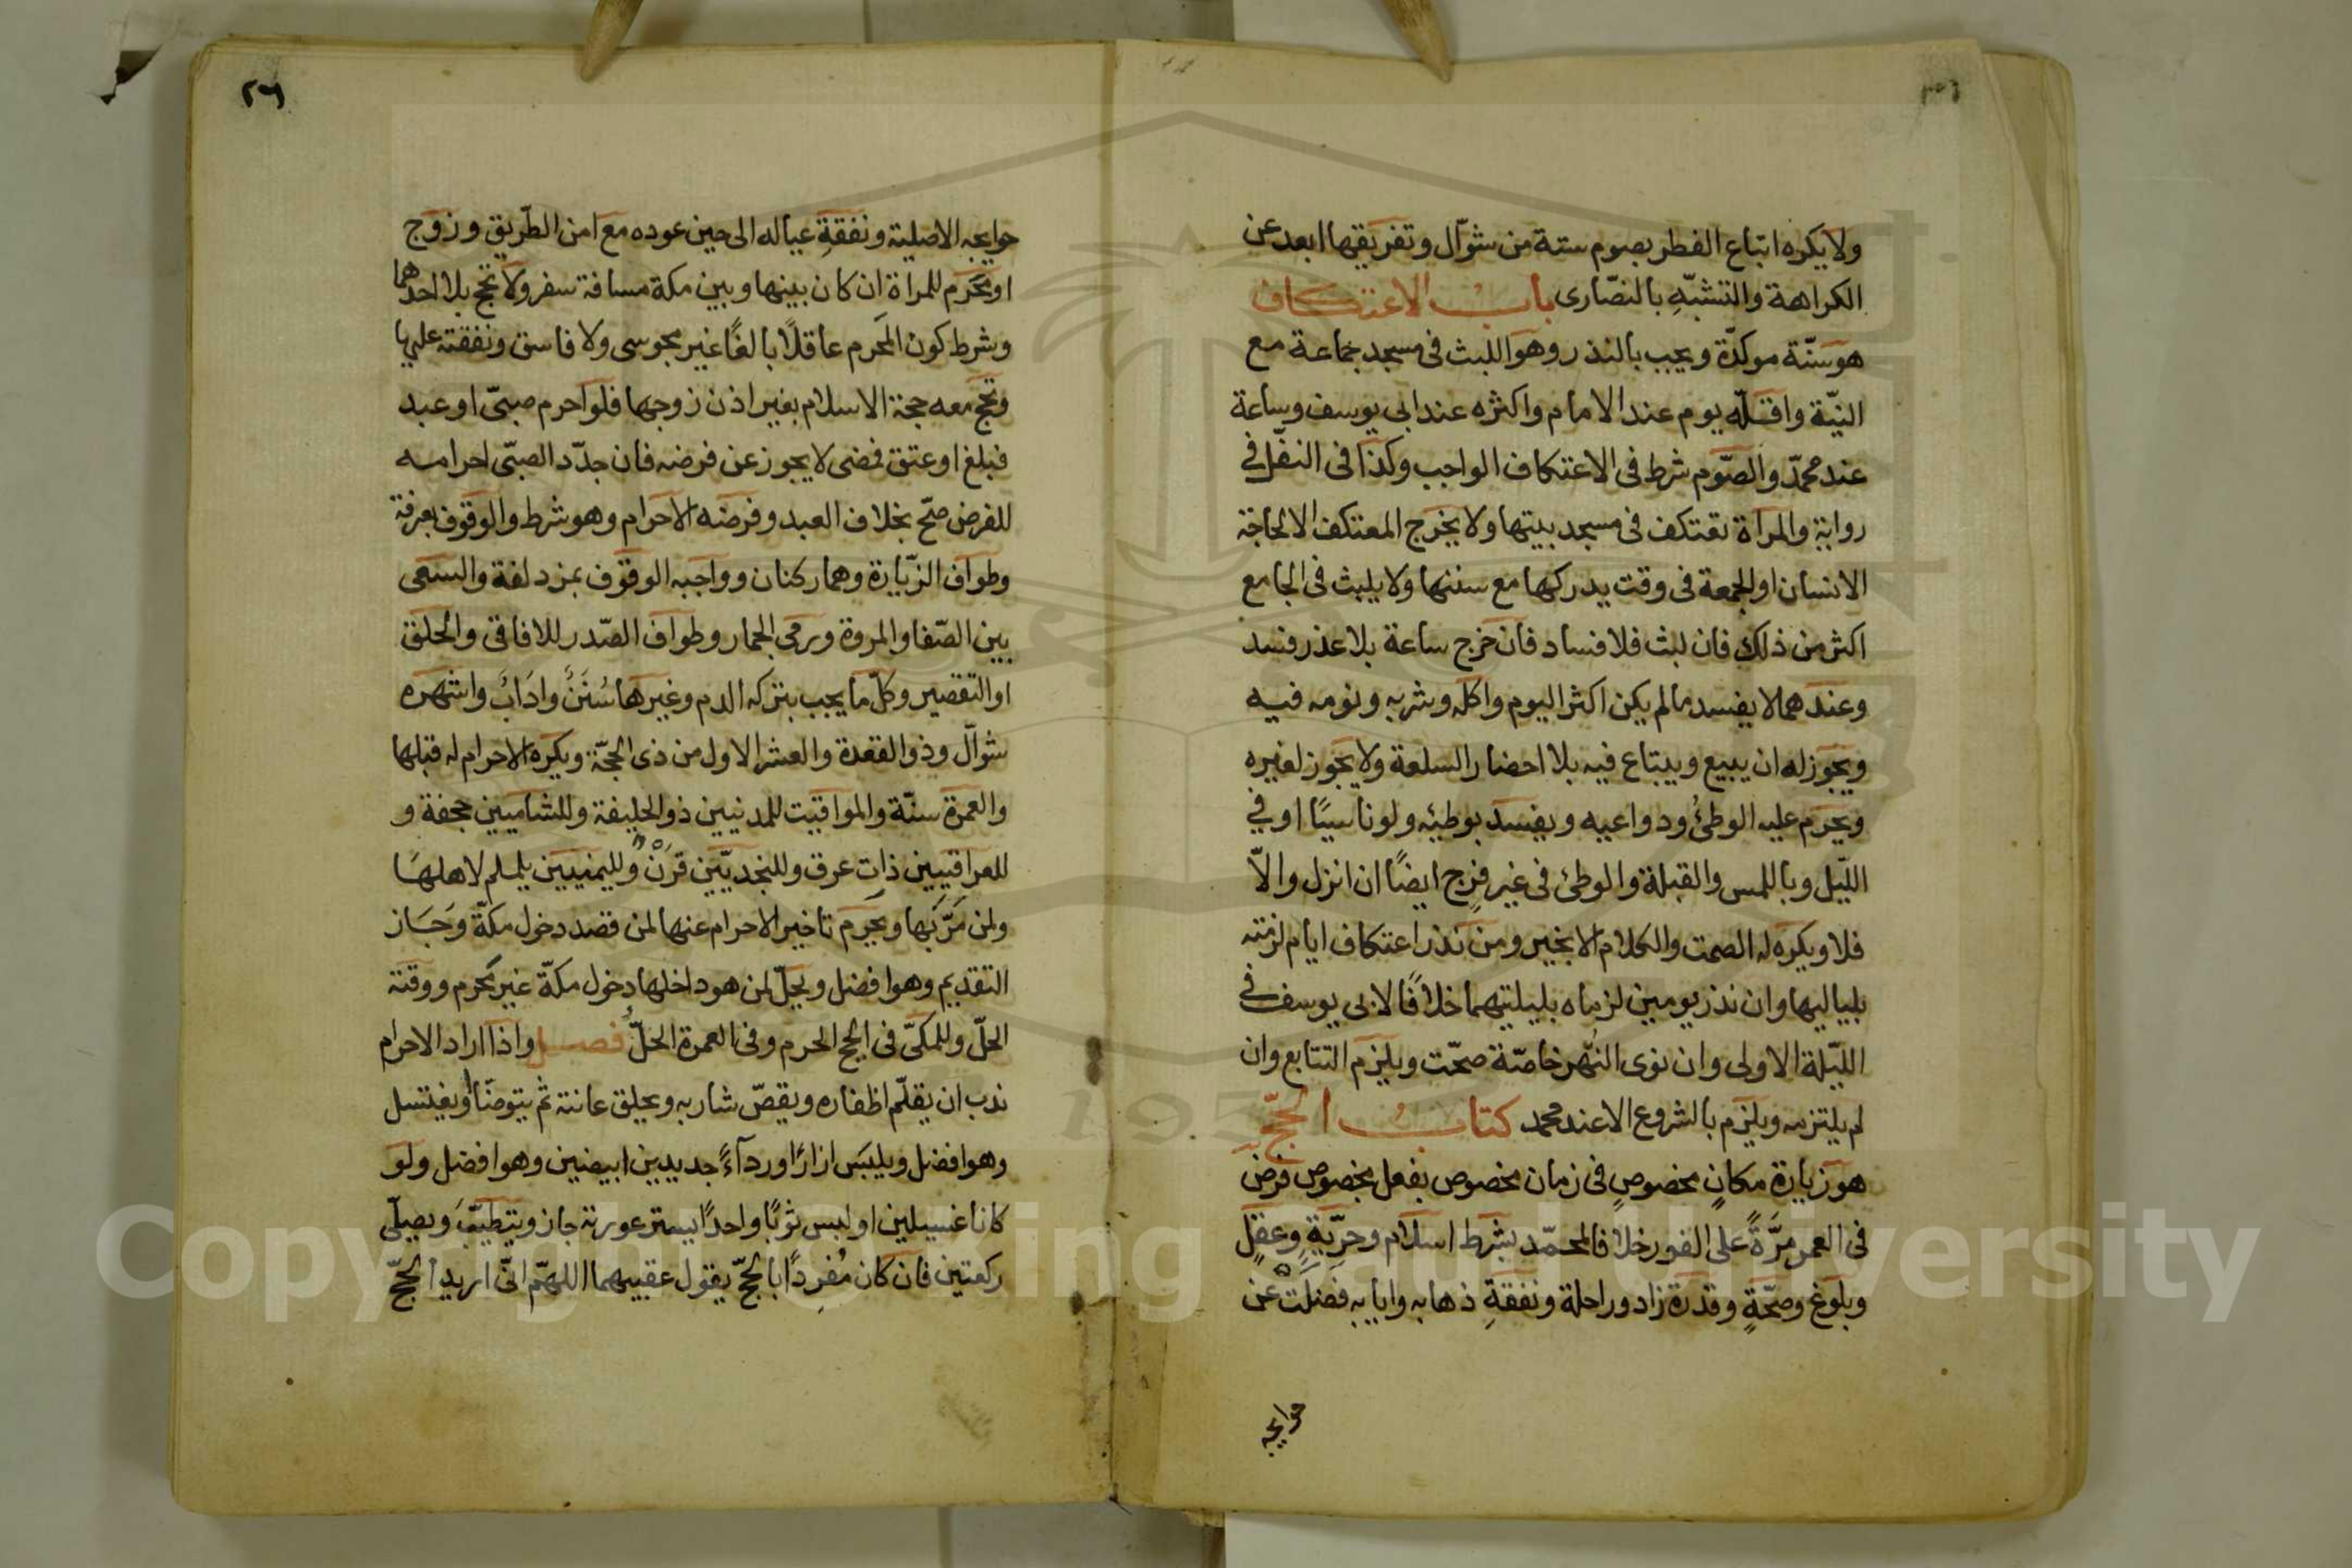 ولا يكره اتباع الفطر بصوم ستة من شوّال وتفريقها ابعد عن
الكراهة والتشبّهِ بالنصّارى بابُ الاعتكاف
هو سنّة موكدّة ويجب بالنذر وهو اللبث فى مسجد جماعة مع
النيّة واقلّه يوم عند الامام واكثره عند ابى يوسف وساعة
عند محمدّ والصّوم شرط فى الاعتكاف الواجب وكذا فى النفّل فى
رواية والمراة تعتكف فى مسجد بيتها ولا يخرج المعتكف الا لحاجة
الانسان او الجمعة فى وقت يدركها مع سننها ولا يلبث فى الجامع
اكثر من ذلك فان لبث فلا فساد فان خرج ساعة بلا عذر فسد
وعندهما لا يفسد ما لم يكن اكثر اليوم واكله وشربه ونومه فيه
ويجوز له ان يبيع ويبتاع فيه بلا احضار السلعة ولا يجوز لغيره
ويحرم عليه الوطئُ ودواعيه ويفسد بوطئه ولو ناسيًا او في
اللّيل وباللمس والقبلة والوطئ فى غير فرج ايضًا ان انزل والاّ
فلا ويكره له الصمت والكلام الا بخير ومن نذر اعتكاف ايام لزمته
بلياليها وان نذر يومين لزماه بليلتيهما خلافًا لابى يوسف فى
الليّلة الاولى وان نوى النّهر خاصّة صحّت ويلزم التتابع وان
لم يلتزمه ويلزم بالشروع الا عند محمد كتابُ الحجّ
هو زيارة مكانٍ مخصوصٍ فى زمان مخصوص بفعل مخصوص فرض
فى العمر مرّةً على الفور خلافا لمحمّد بشرط اسلام وحرّيةٍ وعقلٍ
وبلوغ وصحّةٍ وقدرة زاد وراحلة ونفقةِ ذهابه وايابه فضلت عن
حوايجه
٢٦
حوايجه الاصلية ونفقةِ عياله الى حين عوده مع امن الطّريق وزوج
او محرم للمراة ان كان بينها وبين مكة مسافة سفر ولا تحج بلا احدهما
وشرط كون المَحرم عاقلًا بالغًا غير مجوسى ولا فاسق ونفقته عليها
وتحج معه حجة الاسلام بغير اذن زوجها فلو احرم صبىّ او عبد
فبلغ او عتق فمضى لا يجوز عن فرضه فان جدّد الصبّى احرامه
للفرض صحّ بخلاف العبد وفرضه الاحرام وهو شرط والوقوف بعرفة
وطواف الزّيارة وهما ركنان وواجبه الوقوف بمزدلفة والسعى
بين الصّفا والمروة ورمى الجمار وطواف الصّدر للافاقى والحلق
او التقصير وكلّ ما يجب بتركه الدم وغيرها سُنَنٌ وادَابٌ واشهره
شوّال وذو القعدة والعشر الاول من ذى الحجّة ويكره الاحرام له قبلها
والعمرة سنّة والمواقيت للمدنيين ذو الحليفة وللشاميين جحفة و
للعراقيين ذات عرق وللنجديّين قرن ولليمنيين يلملم لاهلها
ولمن مَرَّ بها ويحرم تاخير الاحرام عنها لمن قصد دخول مكّة وجَاز
التقديم وهو افضل ويحلّ لمن هو داخلها دخول مكّة غير محرم ووقته
الحلّ وللمكىّ فى الحج الحرم وفى العمرة الحلّ فصل واذا اراد الاحرام
ندب ان يقلّم اظفاره ويقصّ شاربه ويحلق عانته ثم يتوضّأ او يغتسل
وهو افضل ويلبَس ازارًا وردآءً جديدين ابيضين وهو افضل ولو
كانا غسيلين او لبس ثوبًا واحدًا يستر عورته جاز ويتطيّب ويصلّى
ركعتين فان كان مُفرِدًا بالحجّ يقول عقيبهما اللهمّ انّى اريد الحجّ
Copyright © King Saud University